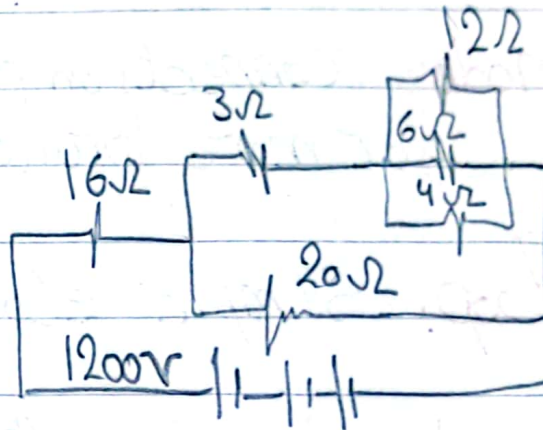 12Ω
3Ω
6Ω
16Ω
4Ω
20Ω
1200v